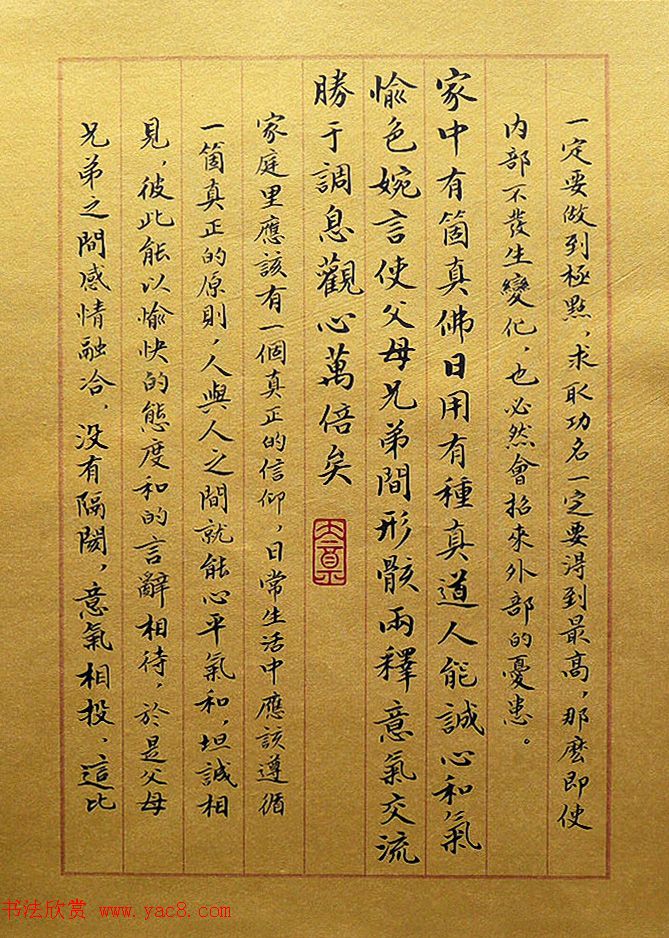 一定要做到極點，求取功名一定要得到最高，那麼即使
内部不發生變化，也必然會招來外部的憂患。
家中有箇真佛日用有種真道人能誠心和氣
愉色婉言使父母兄弟間形骸兩釋意氣交流
勝于調息觀心萬倍矣
家庭里應該有一個真正的信仰，日常生活中應該遵循
一箇真正的原則，人與人之間就能心平氣和，坦誠相
見，彼此能以愉快的態度和的言辭相待，於是父母
兄弟之間感情融洽，没有隔閡，意氣相投，這比
书法欣赏 www.yac8.com